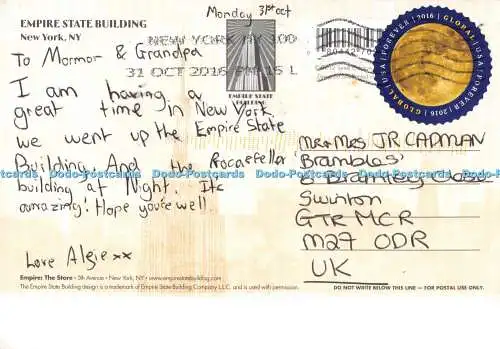 EMPIRE STATE BUILDING
New York, NY
Monday 31st oct
To Mormor & Grandpa
NEW YORK NY 100
31 OCT 2016 PM 15 L
I am having a
great time in New York
we went up the Empire State
Building. And the Rocaefeller
building at Night. Its
amazing! Hope you're well.
Love Algie xx
EMPIRE STATE
BUILDING
GLOBAL | USA | FOREVER | 2016 | GLOBAL | USA | FOREVER | 2016
Mr + Mrs JR CADMAN
Brambles'
8 Bramley Close
Swinton
GTR MCR
M27 0DR
UK
Empire: The Store • 5th Avenue • New York, NY • www.empirestatebuilding.com
The Empire State Building design is a trademark of Empire State Building Company L.L.C. and is used with permission.
DO NOT WRITE BELOW THIS LINE — FOR POSTAL USE ONLY.
Dodo-Postcards Dodo-Postcards Dodo-Postcards